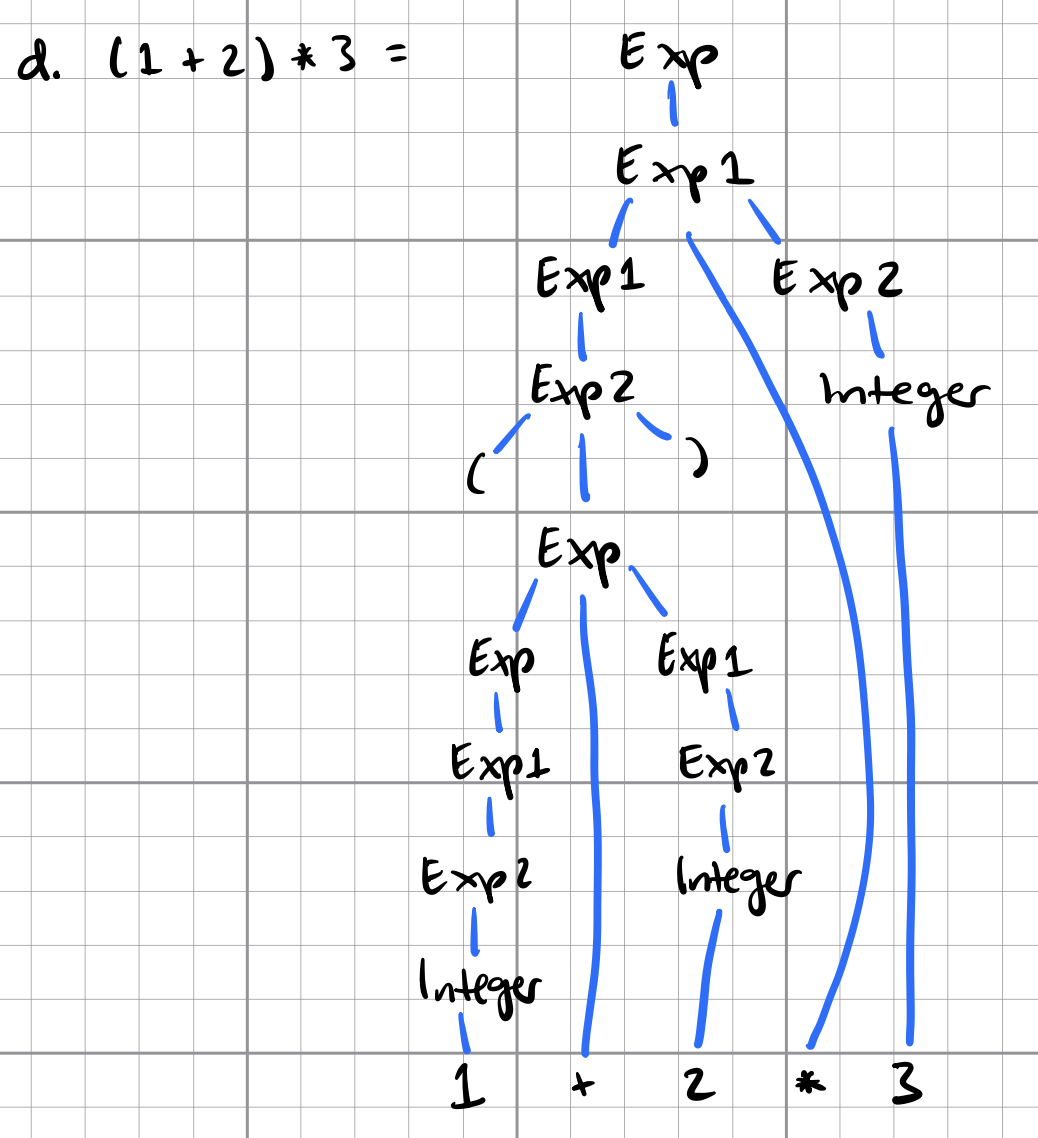 d. (1 + 2) * 3 =
Exp
Exp1
Exp1 Exp2
Exp2 Integer
( )
Exp
Exp Exp1
Exp1 Exp2
Exp2 Integer
Integer
1 + 2 * 3